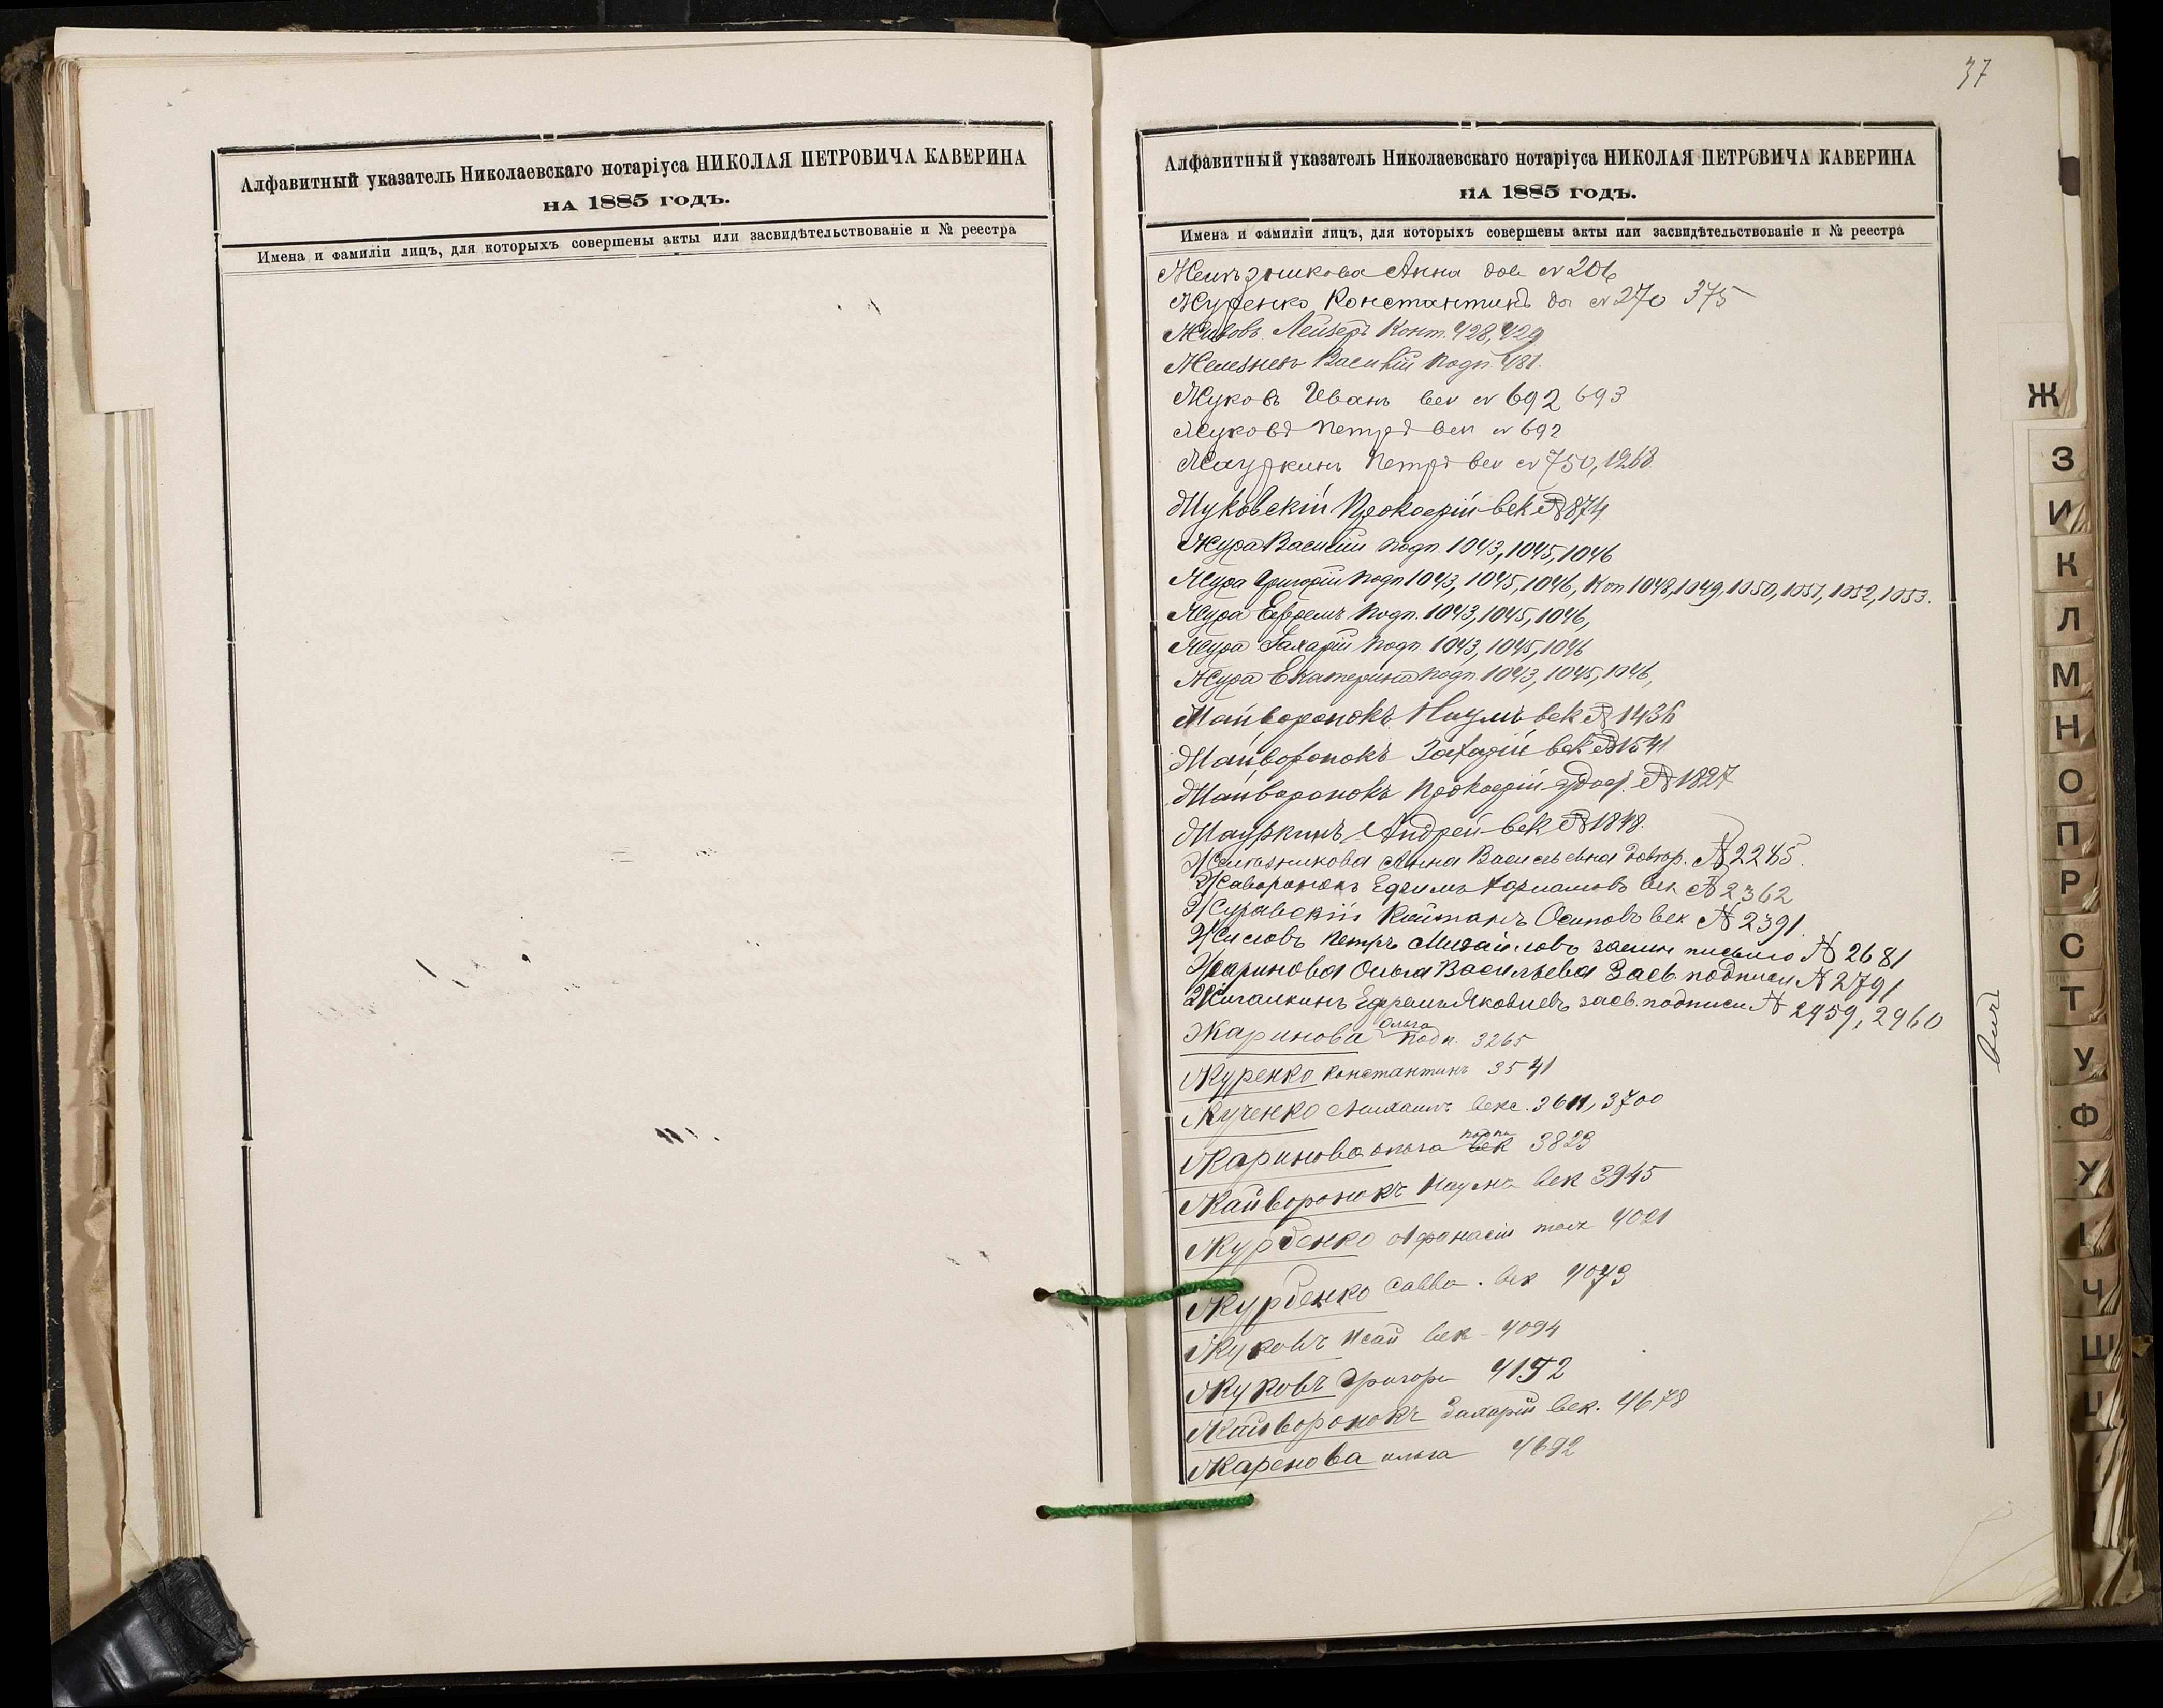 Алфавитный указатель Николаевскаго нотаріуса НИКОЛАЯ ПЕТРОВИЧА КАВЕРИНА
НА 1885 ГОДЪ.
Имена и фамиліи лицъ, для которыхъ совершены акты или засвидѣтельствованіе и № реестра
37
Алфавитный указатель Николаевскаго нотаріуса НИКОЛАЯ ПЕТРОВИЧА КАВЕРИНА
НА 1885 ГОДЪ.
Имена и фамиліи лицъ, для которыхъ совершены акты или засвидѣтельствованіе и № реестра
Анна дов № 206
Журенко Константинъ до № 270 375
Лейзеръ Конт. 428, 429
Василій подп. 481.
Жуковъ Иванъ век № 692 693
Жуковъ Петръ век № 692
Жауркинъ Петръ век № 750, 1268
Жуковскій Прокофій век № 874
Жура Василій подп. 1043, 1045, 1046
Жура Григорій подп 1043, 1045, 1046, Коп 1048, 1049, 1050, 1051, 1052, 1053.
Жура Ефремъ подп. 1043, 1045, 1046,
Жура Захарій подп 1043, 1045, 1046
Жура Екатерина подп 1043, 1045, 1046,
Жайворонокъ Наумъ век № 1436
Жайворонокъ Захарій век № 1541
Жайворонокъ Прокофій № 1827
Жауркинъ Андрей век № 1848.
Анна Васильевна довѣр. № 2245.
Жаворонокъ век № 2362
Журавскій Осиповъ век № 2391.
Петръ Михайловъ письмо № 2681
Жаринова Ольга Васильева Засв. подписи № 2791
Жигалкинъ Ефремъ Яковлевъ засв. подписи № 2959, 2960
Жаринова Ольга подп. 3265
Журенко Константинъ 3541
Жученко Михаилъ векс. 3611, 3700
Жаринова Ольга подпи 3823
Жайворонокъ Наумъ век 3945
Журбенко Афонасій 4021
Журбенко Савва. век 4073
Жуковъ Исай век 4094
Жуковъ Григорі 4152
Жайворонокъ Захарій век. 4678
Жаренова ольга 4692
Ж
З
И
К
Л
М
Н
О
П
Р
С
Т
У
Ф
Х
Ц
Ч
Ш
Щ